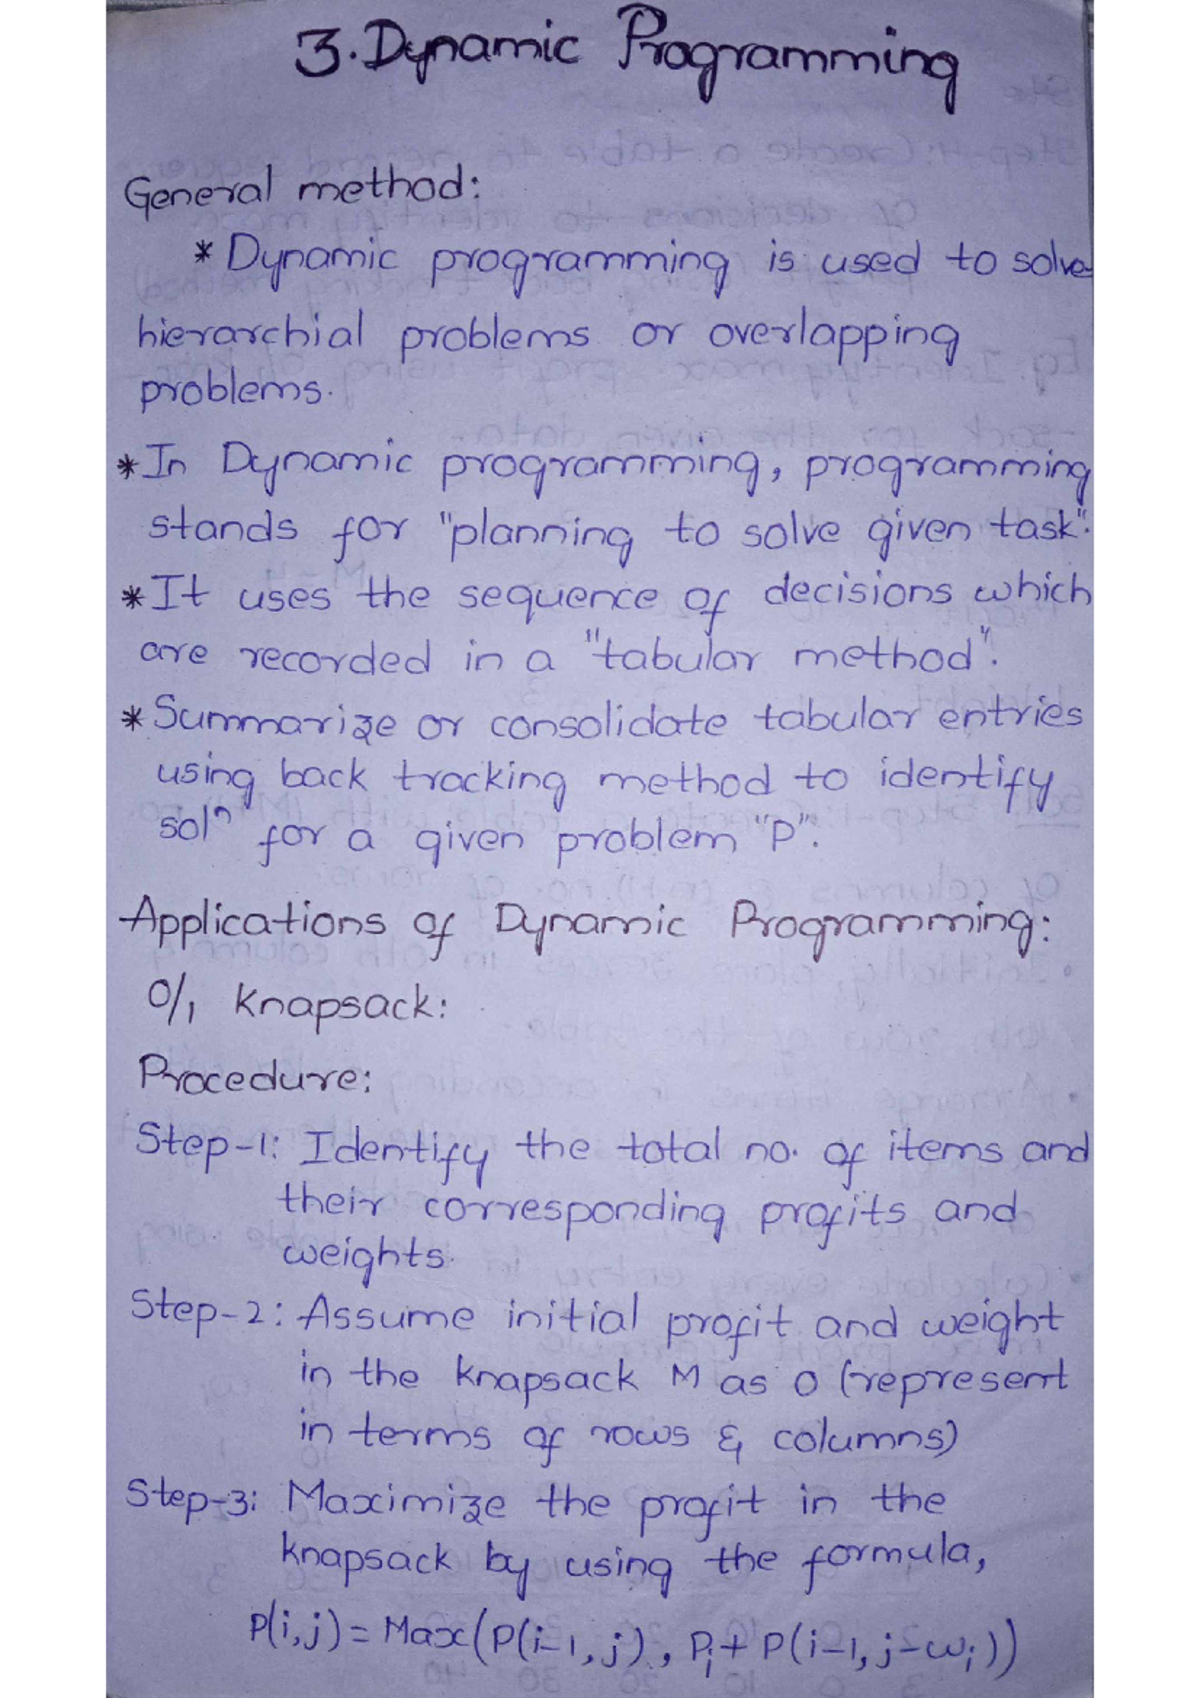 3. Dynamic Programming
General method:
* Dynamic programming is used to solve
hierarchial problems or overlapping
problems.
* In Dynamic programming, programming
stands for "planning to solve given task".
* It uses the sequence of decisions which
are recorded in a "tabular method".
* Summarize or consolidate tabular entries
using back tracking method to identify
solⁿ for a given problem "P".
Applications of Dynamic Programming:
0/1 Knapsack:
Procedure:
Step-1: Identify the total no. of items and
their corresponding profits and
weights.
Step-2: Assume initial profit and weight
in the knapsack M as 0 (represent
in terms of rows & columns)
Step-3: Maximize the profit in the
knapsack by using the formula,
P(i,j) = Max(P(i-1, j), Pi + P(i-1, j-wi))